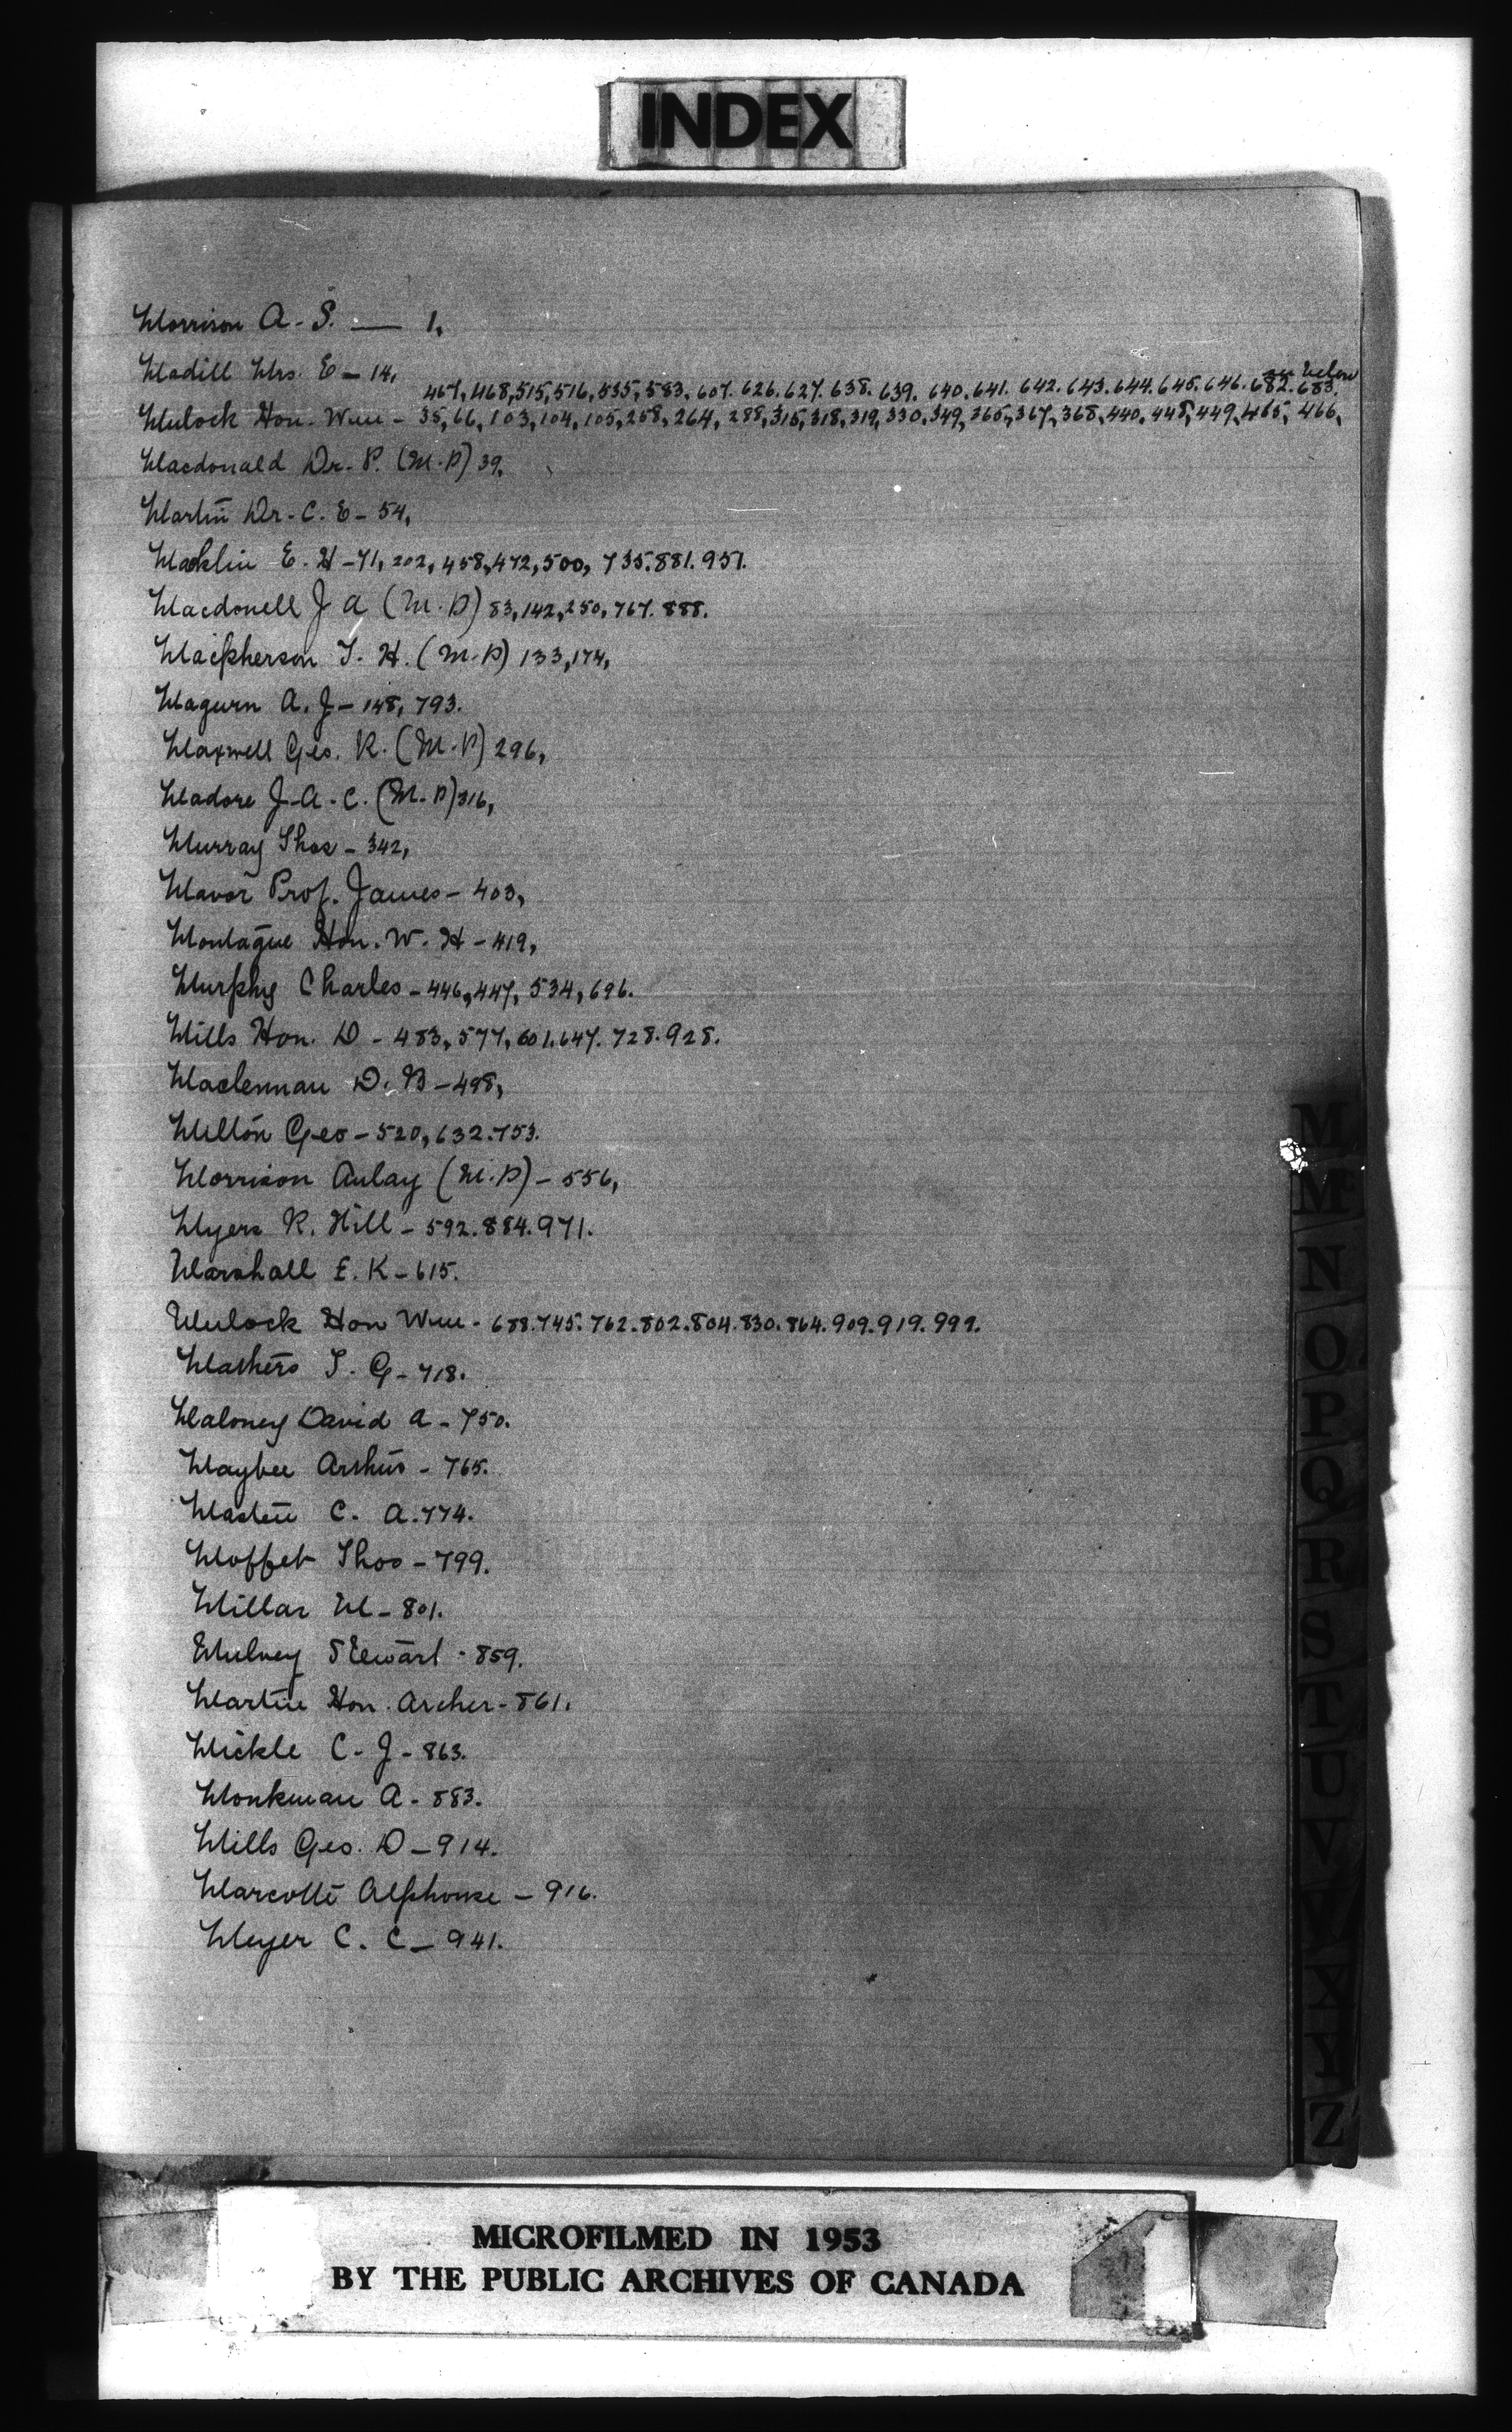 INDEX
Morrison A. S. — 1,
Madill Mrs. E - 14,
see below
467, 468, 515, 516, 535, 583, 607. 626. 627. 638. 639. 640. 641. 642. 643. 644. 645. 646. 682. 683.
Mulock Hon. Wm - 35, 66, 103, 104, 105, 258, 264, 288, 315, 318, 319, 330, 349, 365, 367, 368, 440, 448, 449, 465, 466,
Macdonald Dr. P. (M.P) 39,
Martin Dr. C. E - 54,
Macklin E. H - 71, 202, 458, 472, 500, 735. 881. 951.
Macdonell J A (M.P) 83, 142, 250, 767. 888.
Macpherson T. H. (M.P) 133, 174,
Magurn A. J - 148, 793.
Maxwell Geo. R. (M.P) 296,
Madore J. A. C. (M.P) 316,
Murray Thos - 342,
Mavor Prof. James - 403,
Montague Hon. W. H - 419,
Murphy Charles - 446, 447, 534, 696.
Mills Hon. D - 483, 577, 601. 647. 728. 928.
Maclennan D. B - 498,
Milton Geo - 520, 632. 753.
Morrison Aulay (M.P) - 556,
Myers R. Hill - 592. 884. 971.
Marshall E. K - 615.
Mulock Hon Wm - 688. 745. 762. 802. 804. 830. 864. 909. 919. 992.
Mathers T. G - 718.
Maloney David A - 750.
Maybee Arthur - 765.
Masten C. A. 774.
Moffet Thos - 799.
Millar M - 801.
Mulvey Stewart - 859.
Martin Hon. Archer - 861.
Mickle C. J - 863.
Monkman A. 883.
Mills Geo. D - 914.
Marcotte Alphonse - 916.
Meyer C. C - 941.
M
Mc
N
O
P
Q
R
S
T
U
V
W
X
Y
Z
MICROFILMED IN 1953
BY THE PUBLIC ARCHIVES OF CANADA